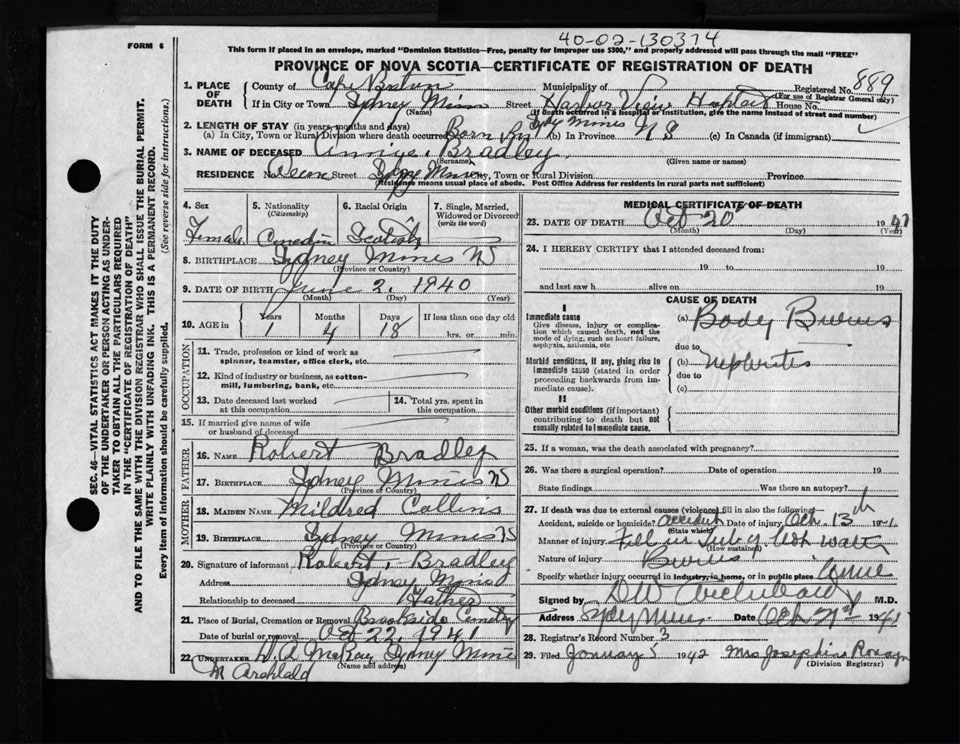 40-02-130374
FORM 6
This form if placed in an envelope, marked "Dominion Statistics—Free, penalty for improper use $300," and properly addressed will pass through the mail "FREE"
PROVINCE OF NOVA SCOTIA—CERTIFICATE OF REGISTRATION OF DEATH
1. PLACE OF DEATH County of Cape Breton Municipality of Registered No. 889
(For use of Registrar General only)
If in City or Town Sydney Mines Street Harbor View Hospital House No.
(Name) (If death occurred in a hospital or institution, give the name instead of street and number)
2. LENGTH OF STAY (in years, months and days)
(a) In City, Town or Rural Division where death occurred Born in Sydney Mines (b) In Province N S (c) In Canada (if immigrant)
3. NAME OF DECEASED Bradley
(Surname) (Given name or names)
RESIDENCE No. Street Sydney Mines City, Town or Rural Division Province
(Residence means usual place of abode. Post Office Address for residents in rural parts not sufficient)
4. Sex 5. Nationality (Citizenship) 6. Racial Origin 7. Single, Married, Widowed or Divorced (write the word)
Female
8. BIRTHPLACE Sydney Mines NS
(Province or Country)
9. DATE OF BIRTH June 2, 1940
(Month) (Day) (Year)
10. AGE in Years Months Days If less than one day old
1 4 18 hrs. or min.
OCCUPATION
11. Trade, profession or kind of work as spinner, teamster, office clerk, etc.
12. Kind of industry or business, as cotton-mill, lumbering, bank, etc.
13. Date deceased last worked at this occupation 14. Total yrs. spent in this occupation
15. If married give name of wife or husband of deceased
FATHER
16. NAME Robert Bradley
17. BIRTHPLACE Sydney Mines NS
(Province or Country)
MOTHER
18. MAIDEN NAME Mildred Collins
19. BIRTHPLACE Sydney Mines NS
(Province or Country)
20. Signature of informant Robert Bradley
Address Sydney Mines
Relationship to deceased Father
21. Place of Burial, Cremation or Removal Brookside Cemetry
Date of burial or removal Oct 22, 1941
22. UNDERTAKER D. A. McKay, Sydney Mines
(Name and address)
M Archbald
MEDICAL CERTIFICATE OF DEATH
23. DATE OF DEATH Oct 20 1941
(Month) (Day) (Year)
24. I HEREBY CERTIFY that I attended deceased from:
19 to 19
and last saw h alive on 19
CAUSE OF DEATH
I
Immediate cause
Give disease, injury or complication which caused death, not the mode of dying, such as heart failure, asphyxia, asthenia, etc
(a) Body Burns
due to
Morbid conditions, if any, giving rise to immediate cause (stated in order proceeding backwards from immediate cause).
(b) Nephritis
due to
(c)
II
Other morbid conditions (if important) contributing to death but not causally related to immediate cause.
25. If a woman, was the death associated with pregnancy?
26. Was there a surgical operation? Date of operation 19
State findings Was there an autopsy?
27. If death was due to external causes (violence) fill in also the following—
Accident, suicide or homicide? Accident Date of injury Oct. 13th 1941
(State which)
Manner of injury Fell in tub of hot water
(How sustained)
Nature of injury Burns
Specify whether injury occurred in industry, in home, or in public place
Signed by M.D.
Address Date 1941
28. Registrar's Record Number 3
29. Filed January 5 1942 Mrs Josephine
(Division Registrar)
SEC. 46—VITAL STATISTICS ACT MAKES IT THE DUTY
OF THE UNDERTAKER OR PERSON ACTING AS UNDER-
TAKER TO OBTAIN ALL THE PARTICULARS REQUIRED
IN THE "CERTIFICATE OF REGISTRATION OF DEATH"
AND TO FILE THE SAME WITH THE DIVISION REGISTRAR WHO SHALL ISSUE THE BURIAL PERMIT.
WRITE PLAINLY WITH UNFADING INK. THIS IS A PERMANENT RECORD.
Every item of information should be carefully supplied. (See reverse side for instructions.)